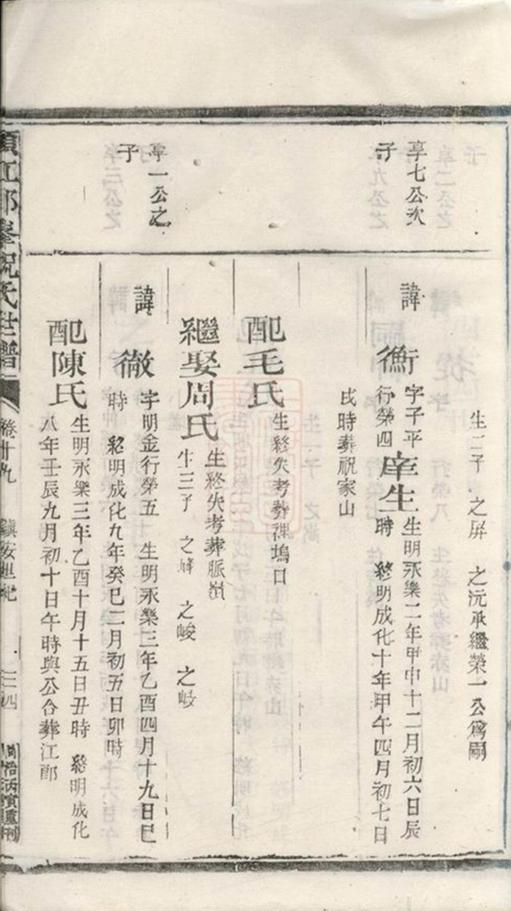 生二子 之屏 之沅承繼榮一公爲嗣
享七公次
子
諱
衡
字子平 庠生 生明永樂二年甲申十二月初六日辰
行第四 時 終明成化十年甲午四月初七日
戌時葬祝家山
配毛氏 生終失考葬裡塢口
繼娶周氏 生終失考葬脈嶺
生三子 之峰 之峻 之岐
享一公之
子
諱
徹
字明金行第五 生明永樂三年乙酉四月十九日巳
時 終明成化九年癸巳二月初五日卯時
配陳氏 生明永樂三年乙酉十月十五日丑時 終明成化
八年壬辰九月初十日午時與公合葬江郎
須江郎峯祝氏世譜
卷廿九
鎮安世紀
三四